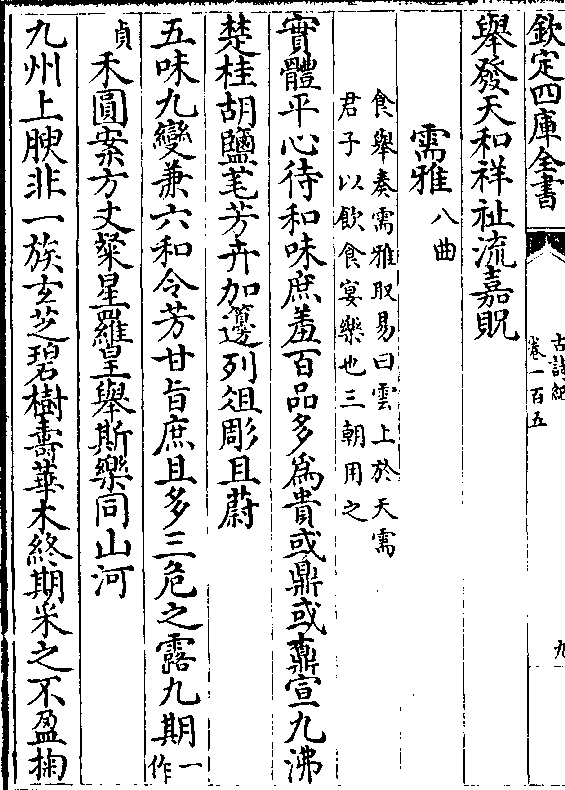 欽定四庫全書
古詩紀
卷一百五
九
舉發天和祥祉流嘉貺
需雅八曲
食舉奏需雅取易曰雲上於天需
君子以飲食宴樂也三朝用之
實體平心待和味庶羞百品多為貴或鼎或鼒宣九沸
楚桂胡鹽芼芳卉加籩列俎彫且蔚
五味九變兼六和令芳甘旨庶且多三危之露九期一作
貞禾圓案方丈粲星羅皇舉斯樂同山河
九州上腴非一族玄芝碧樹壽華木終期采之不盈掬